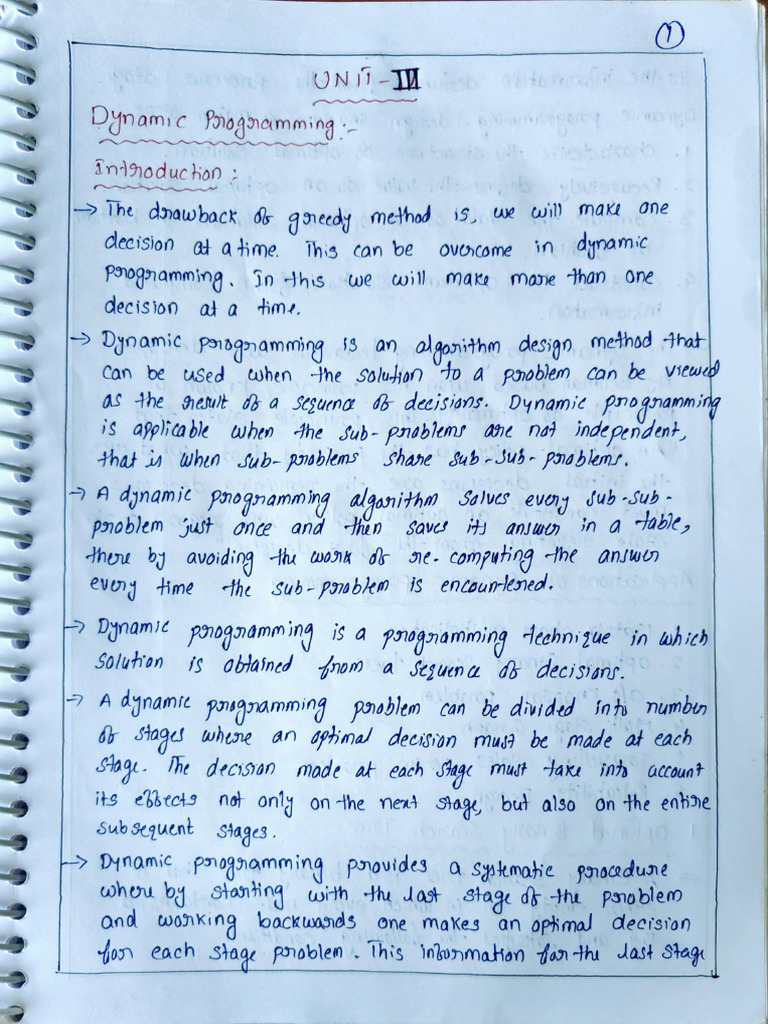 1
UNIT-III
Dynamic Programming:-
Introduction:
→ The drawback of greedy method is, we will make one
decision at a time. This can be overcome in dynamic
programming. In this we will make more than one
decision at a time.
→ Dynamic programming is an algorithm design method that
can be used when the solution to a problem can be viewed
as the result of a sequence of decisions. Dynamic programming
is applicable when the sub-problems are not independent,
that is when sub-problems share sub-sub-problems.
→ A dynamic programming algorithm solves every sub-sub-
problem just once and then saves its answer in a table,
there by avoiding the work of re-computing the answer
every time the sub-problem is encountered.
→ Dynamic programming is a programming technique in which
solution is obtained from a sequence of decisions.
→ A dynamic programming problem can be divided into number
of stages where an optimal decision must be made at each
stage. The decision made at each stage must take into account
its effects not only on the next stage, but also on the entire
subsequent stages.
→ Dynamic programming provides a systematic procedure
where by starting with the last stage of the problem
and working backwards one makes an optimal decision
for each stage problem. This information for the last stage